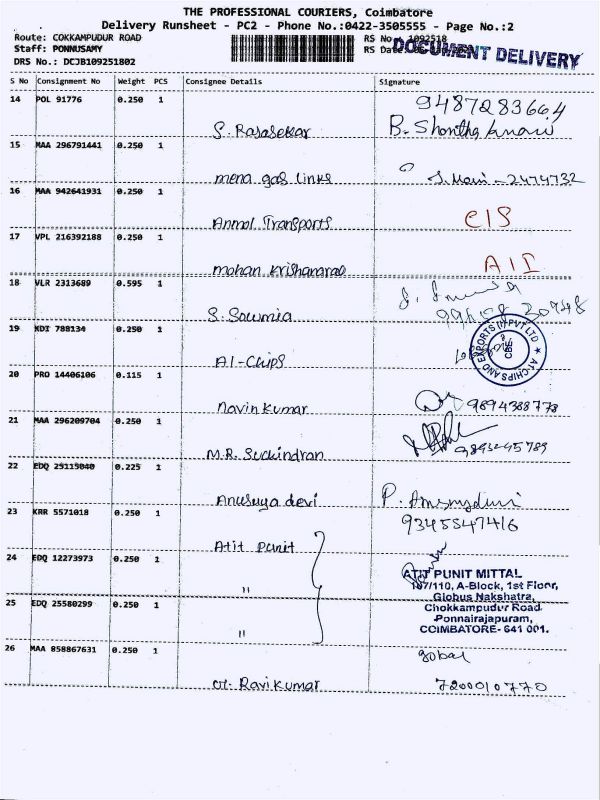 THE PROFESSIONAL COURIERS, Coimbatore
Delivery Runsheet - PC2 - Phone No.:0422-3505555 - Page No.:2
Route: COKKAMPUDUR ROAD
RS No.: 1092518
Staff: PONNUSAMY
RS Date
DOCUMENT DELIVERY
DRS No.: DCJB109251802
S No Consignment No Weight PCS Consignee Details Signature
14 POL 91776 0.250 1
9487283664
S. Rajasekar B.
15 MAA 296791441 0.250 1
mena gas links S. Mani - 2474732
16 MAA 942641931 0.250 1
Anmol Transports CIS
17 VPL 216392188 0.250 1
mohan Krishnarao AII
18 VLR 2313689 0.595 1
S. Sowmia
19 KDI 788134 0.250 1
A1-Chips
A1-CHIPS AND EXPORTS (I) PVT LTD
CBE.
20 PRO 14406106 0.115 1
Navin Kumar 9894388778
21 MAA 296209704 0.250 1
M.R. Suckindran
22 EDQ 25115040 0.225 1
Anusuya devi P.
23 KRR 5571018 0.250 1
9345547416
Atit Punit
24 EDQ 12273973 0.250 1
"
ATIT PUNIT MITTAL
167/110, A-Block, 1st Floor,
Globus Nakshatra,
25 EDQ 25580299 0.250 1
Chokkampudur Road
Ponnairajapuram,
"
COIMBATORE- 641 001.
26 MAA 858867631 0.250 1
gobal
Ravikumar 7200010770